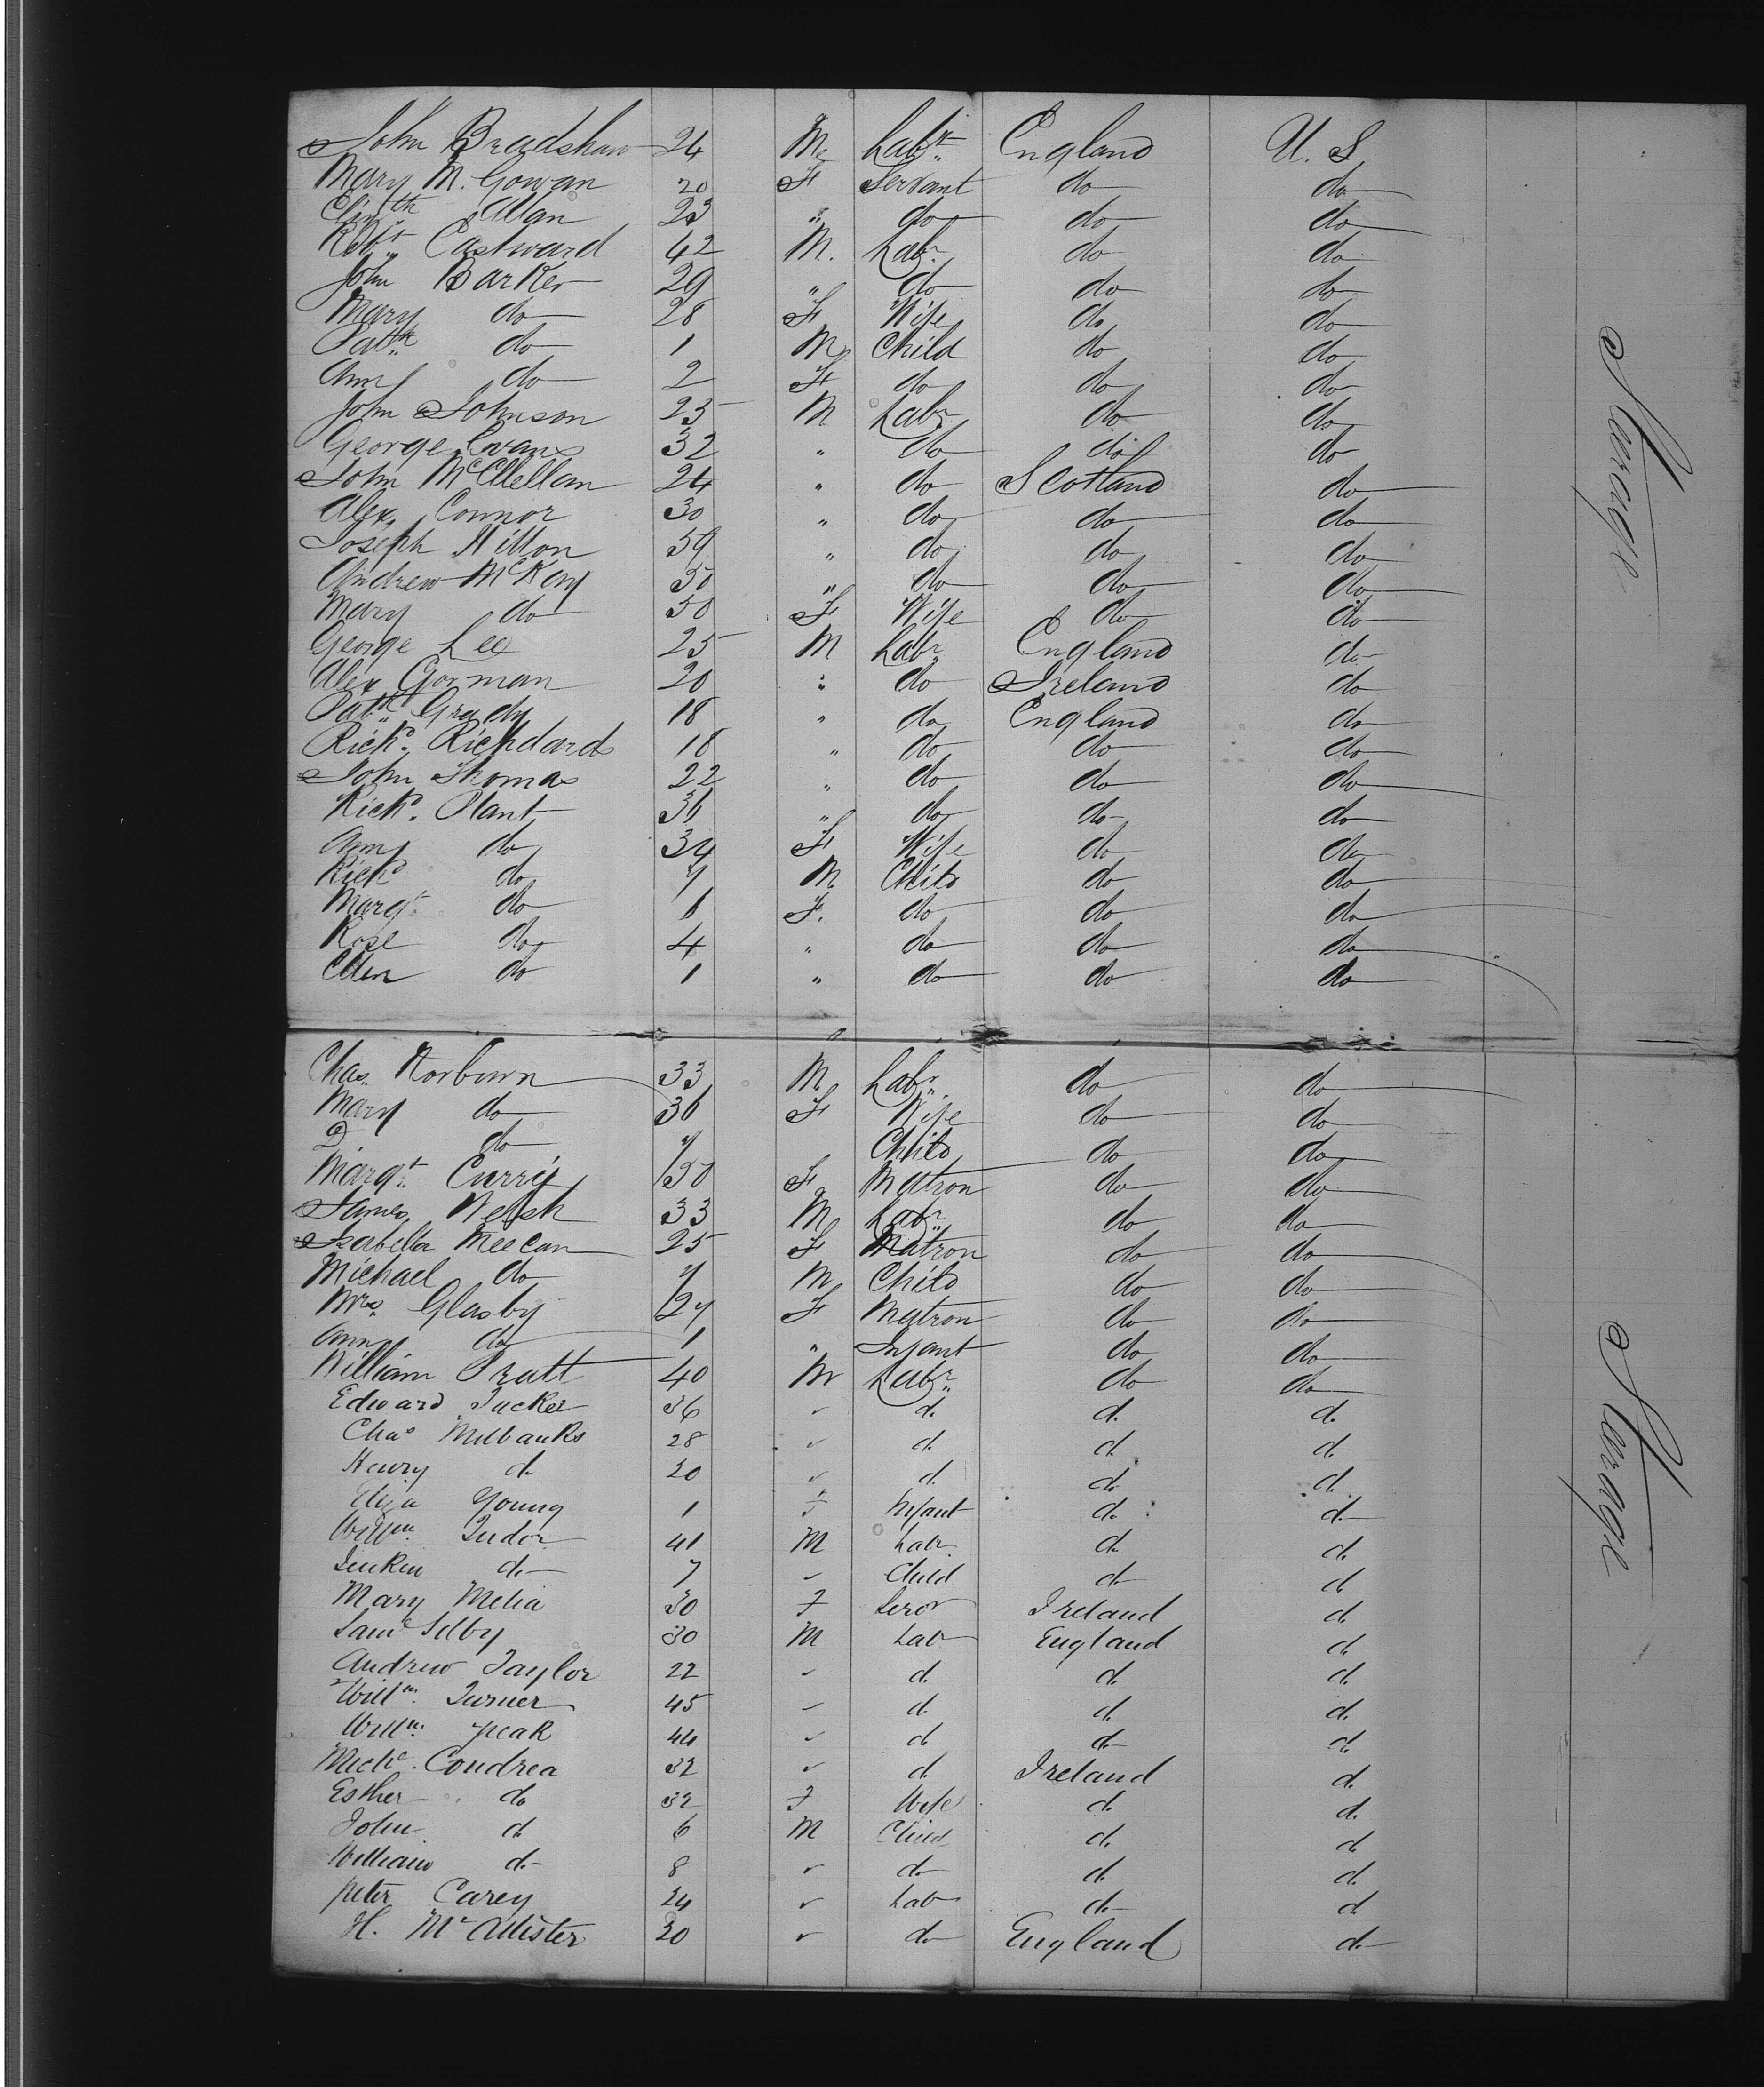 John Bradshaw 24 M Labr England U. S.
Mary M. Gowan 20 F Servant do do
Elizth Allan 23 " do do do
Robt Eastward 42 M. Labr do do
John Barker 29 " do do do
Mary do 28 F Wife do do
Patk do 1 M Child do do
Ann do 2 F do do do
John Johnson 25 M Labr do do
George Evans 32 " do do do
John McClellan 24 " do Scotland do
Alex. Connor 30 " do do do
Joseph Hilton 59 " do do do
Andrew McKay 50 " do do do
Mary do 50 F Wife do do
George Lee 25 M Labr England do
Alex Gorman 20 " do Ireland do
Patk Grady 18 " do England do
Richd. Richdards 18 " do do do
John Thomas 22 " do do do
Richd. Plant 36 " do do do
Ann do 34 F Wife do do
Richd do 7 M Child do do
Margt do 6 F. do do do
Rose do 4 " do do do
Ellen do 1 " do do do
Steerage
Chas. Norburn 33 M Labr do do
Mary do 36 F Wife do do
D. do Child do do
Margt Currey 50 F Matron do do
James Welsh 33 M Labr do do
Isabella Meecan 25 F Matron do do
Michael do M Child do do
Mrs Glasby 27 F Matron do do
Ann do 1 " Infant do do
William Pratt 40 M Labr do do
Edward Tucker 36 " d. d. d.
Chas Milbanks 28 " d d d
Henry d. 20 " d. d. d.
Eliza Young 1 F Infant d. d.
Willm Tudor 41 M Labr d. d.
Jenkin d. 7 " Child d. d
Mary Melia 30 F Serv Ireland d.
Saml Selby 30 M Lab England d.
Andrew Taylor 22 " d. d. d.
Willm. Turner 45 " d. d. d.
Willm. Peak 44 " d d. d.
Michl. Condrea 32 " d. Ireland d.
Esther do 32 F Wife d. d.
John d. 6 M Child d. d
William d. 8 " d. d. d.
Peter Carey 24 " Lab d. d
H. McAllister 20 " d. England d.
Steerage